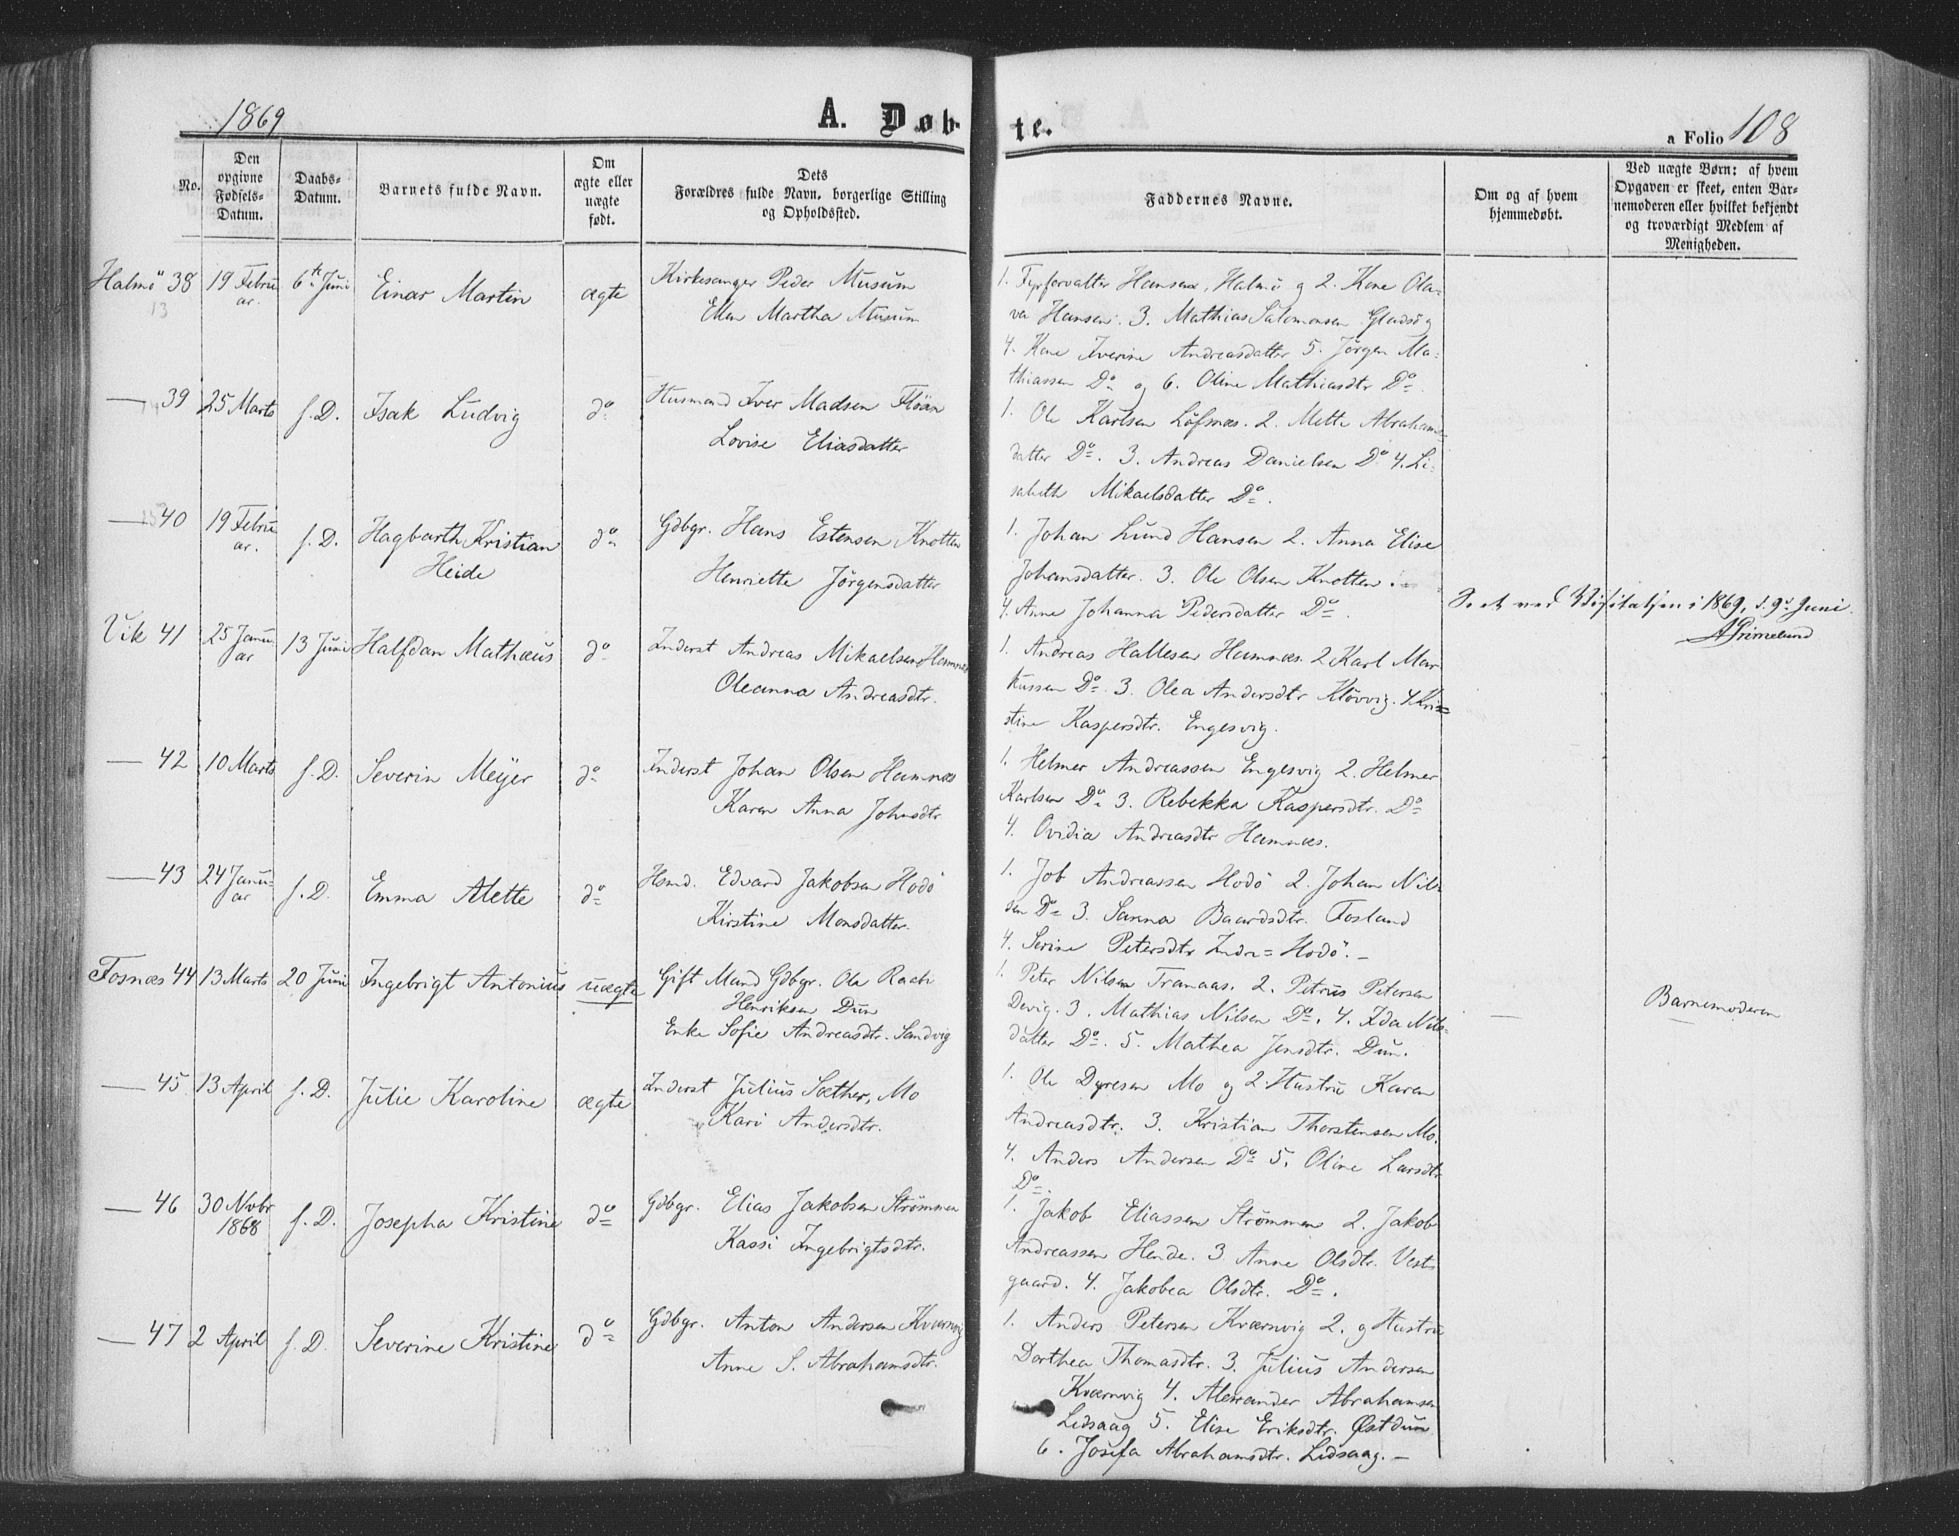 1869
A. Døb-
te.
a Folio 108
No.
Den
opgivne
Fødsels-
Datum.
Daabs-
Datum.
Barnets fulde Navn.
Om
ægte eller
uægte
født.
Dets
Forældres fulde Navn, borgerlige Stilling
og Opholdssted.
Faddernes Navne.
Om og af hvem
hjemmedøbt.
Ved uægte Børn: af hvem
Opgaven er skeet, enten Bar-
nemoderen eller hvilket bekjendt
og troværdigt Medlem af
Menigheden.
Halmö 38
13
19 Febru
ar.
6te Juni
Einar Martin
ægte
Kirkesanger Peder Musum
Ellen Martha Musum
1. Hansen, Halmö og 2. Kone Ola-
va Hansen. 3. Mathias Salomonsen Gladsö og
4. Kone Iverine Andreasdatter 5. Jørgen Ma-
thiassen Do og 6. Oline Mathiasdtr Do.
— 39
25 Marts
s. D.
Isak Ludvig
do
Husmand Iver Madsen Flöan
Lovise Eliasdatter
1. Ole Karlsen Löfsnæs. 2. Mette Abrahams-
datter Do. 3. Andreas Danielsen Do 4. Li-
sabeth Mikaelsdatter Do.
— 40
19 Febru
ar.
s. D.
Hagbarth Kristian
Heide
do
Gdbgr. Hans Estensen Knotten
Henriette Jørgensdatter
1. Johan Lund Hansen 2. Anna Elise
Johansdatter. 3. Ole Olsen Knotten.
4. Anne Johanna Pedersdatter Do.
Seet ved Visitatsen i 1869, d. 9de Juni.
A Grimelund
Vik 41
25 Janu-
ar
13 Juni
Halfdan Mathæus
do
Inderst Andreas Mikaelsen Hamnæs
Oleanna Andreasdtr.
1. Andreas Hallesen Hamnæs. 2 Karl Mar-
kussen Do. 3. Olea Andersdtr Klövvig. 4 Kri-
stine Kaspersdtr. Engesvig.
— 42
10 Marts
s. D.
Severin Meÿer
do
Inderst Johan Olsen Hamnæs
Karen Anna Johnsdtr
1. Helmer Andreassen Engesvig 2. Helmer
Karlsen Do 3. Rebekka Kaspersdtr. Do
4. Ovidia Andreasdtr Hamnæs.
— 43
24 Janu-
ar
s. D.
Emma Alette
do
Hsmd. Edvard Jakobsen Hodö
Kirstine Monsdatter.
1. Job Andreassen Hodö 2. Johan Nil-
sen Do 3. Sanna Baardsdtr. Fosland
4. Serine Petersdtr Indr= Hodö. —
Fosnæs 44
13 Marts
20 Juni
Ingebrigt Antonius
uægte
Gift Mand Gdbgr. Ole
Henriksen Dun
Enke Sofie Andreasdtr. Sandvig
1. Peter Nilsen Tranaas. 2. Petrus Petersen
Devig. 3. Mathias Nilsen Do. 4. Ida Nils-
datter Do. 5. Mathea Jensdtr. Dun.
—
Barnemoderen
— 45
13 April
s. D.
Julie Karoline
ægte
Inderst Julius Sæther, Mo
Kari Andersdtr.
1. Ole Dyresen Mo og 2 Hustru Karen
Andreasdtr. 3. Kristian Thorstensen Mo.
4. Anders Andersen Do 5. Oline Larsdtr
Do.
— 46
30 Novbr
1868
s. D.
Josepha Kristine
do
Gdbgr. Elias Jakobsen Strömmen
Kassi Ingebrigtsdtr.
1. Jakob Eliassen Strømmen 2. Jakob
Andreassen Hende. 3 Anne Olsdtr. Vest-
gaard. 4. Jakobea Olsdtr. Do.
— 47
2 April
s. D.
Severine Kristine
do
Gdbgr. Anton Andersen Kværnvig
Anne S. Abrahamsdtr.
1. Anders Petersen Kværnvig 2. og Hustru
Dorthea Thomasdtr. 3. Julius Andersen
Kværnvig 4. Alexander Abrahamsen
Lidsaag 5. Elise Eriksdtr. Østdun
6. Josefa Abrahamsdtr. Lidsaag. —